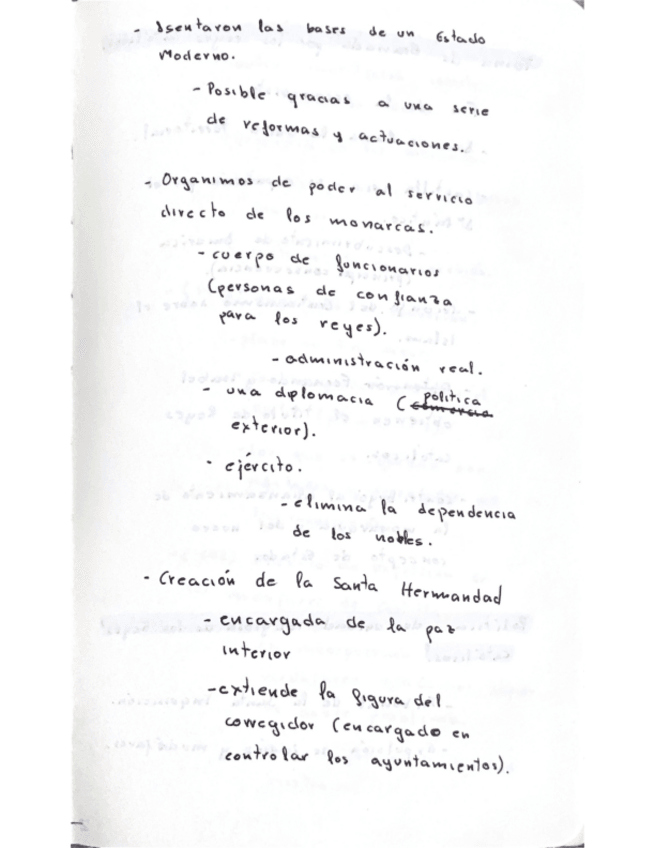 - Asentaron las bases de un Estado
Moderno.
- Posible gracias a una serie
de reformas y actuaciones.
- Organimos de poder al servicio
directo de los monarcas.
- cuerpo de funcionarios
(personas de confianza
para los reyes).
- administración real.
- una diplomacia (política
comercio
exterior).
- ejército.
- elimina la dependencia
de los nobles.
- Creación de la Santa Hermandad
- encargada de la paz
interior
- extiende la figura del
corregidor (encargado en
controlar los ayuntamientos).